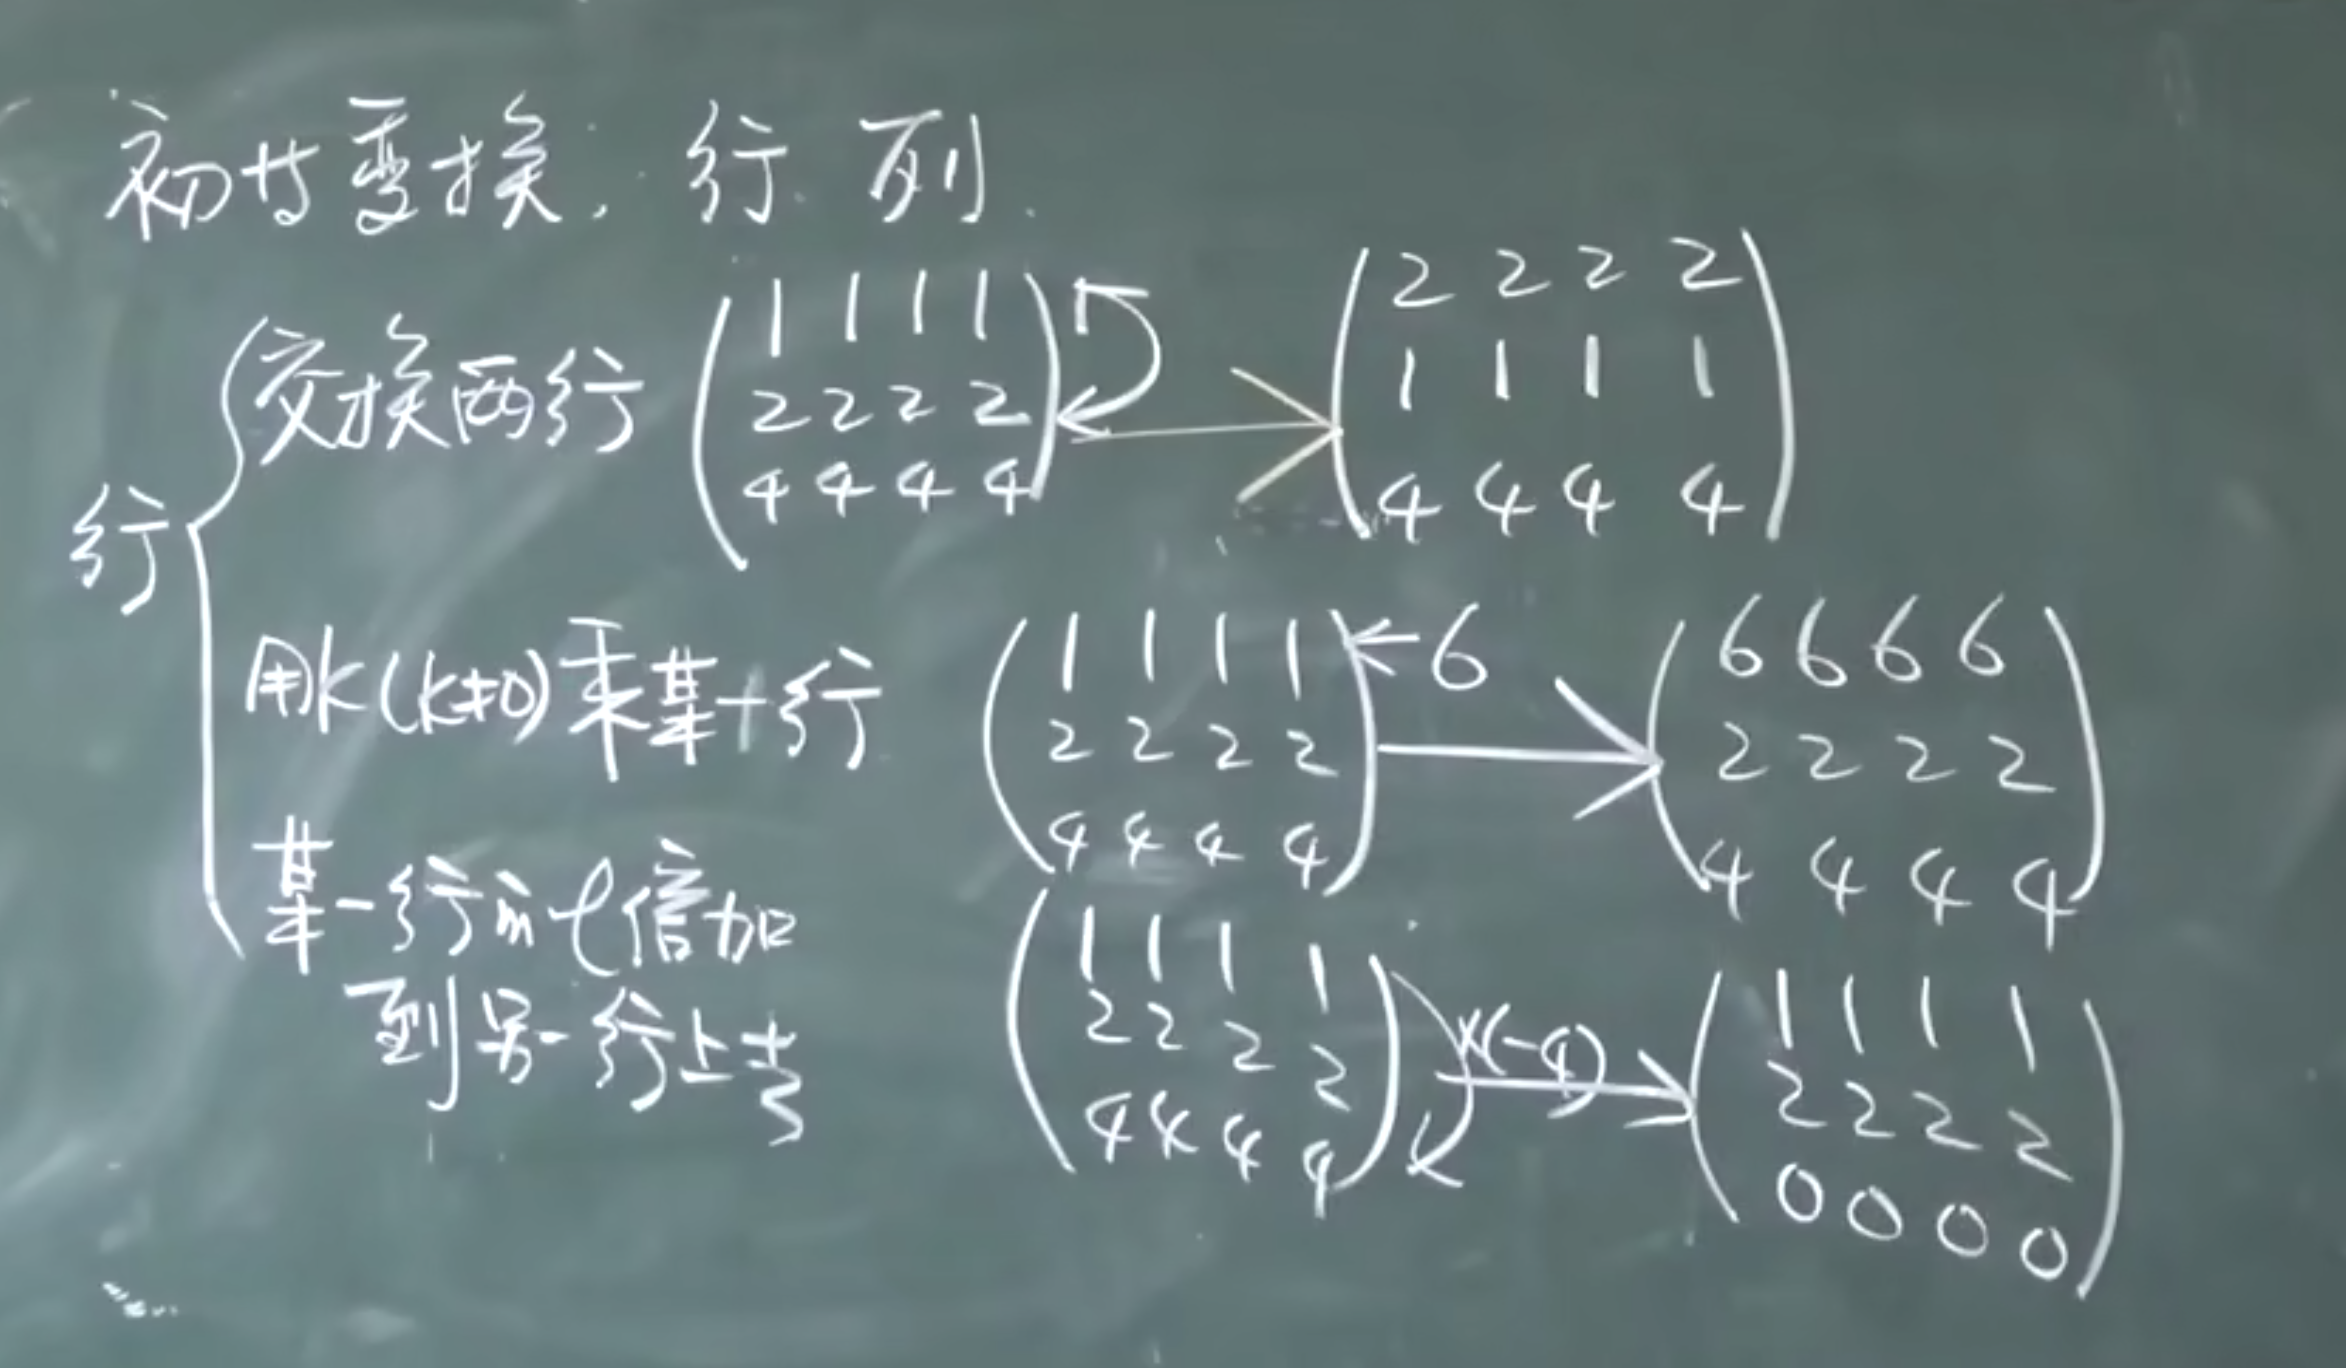 初等变换. 行. 列.
行
交换两行 (1 1 1 1 / 2 2 2 2 / 4 4 4 4) → (2 2 2 2 / 1 1 1 1 / 4 4 4 4)
用k(k≠0)乘某一行 (1 1 1 1 / 2 2 2 2 / 4 4 4 4) ←6 → (6 6 6 6 / 2 2 2 2 / 4 4 4 4)
某一行的l倍加
到另一行上去 (1 1 1 1 / 2 2 2 2 / 4 4 4 4) ×(-4) → (1 1 1 1 / 2 2 2 2 / 0 0 0 0)